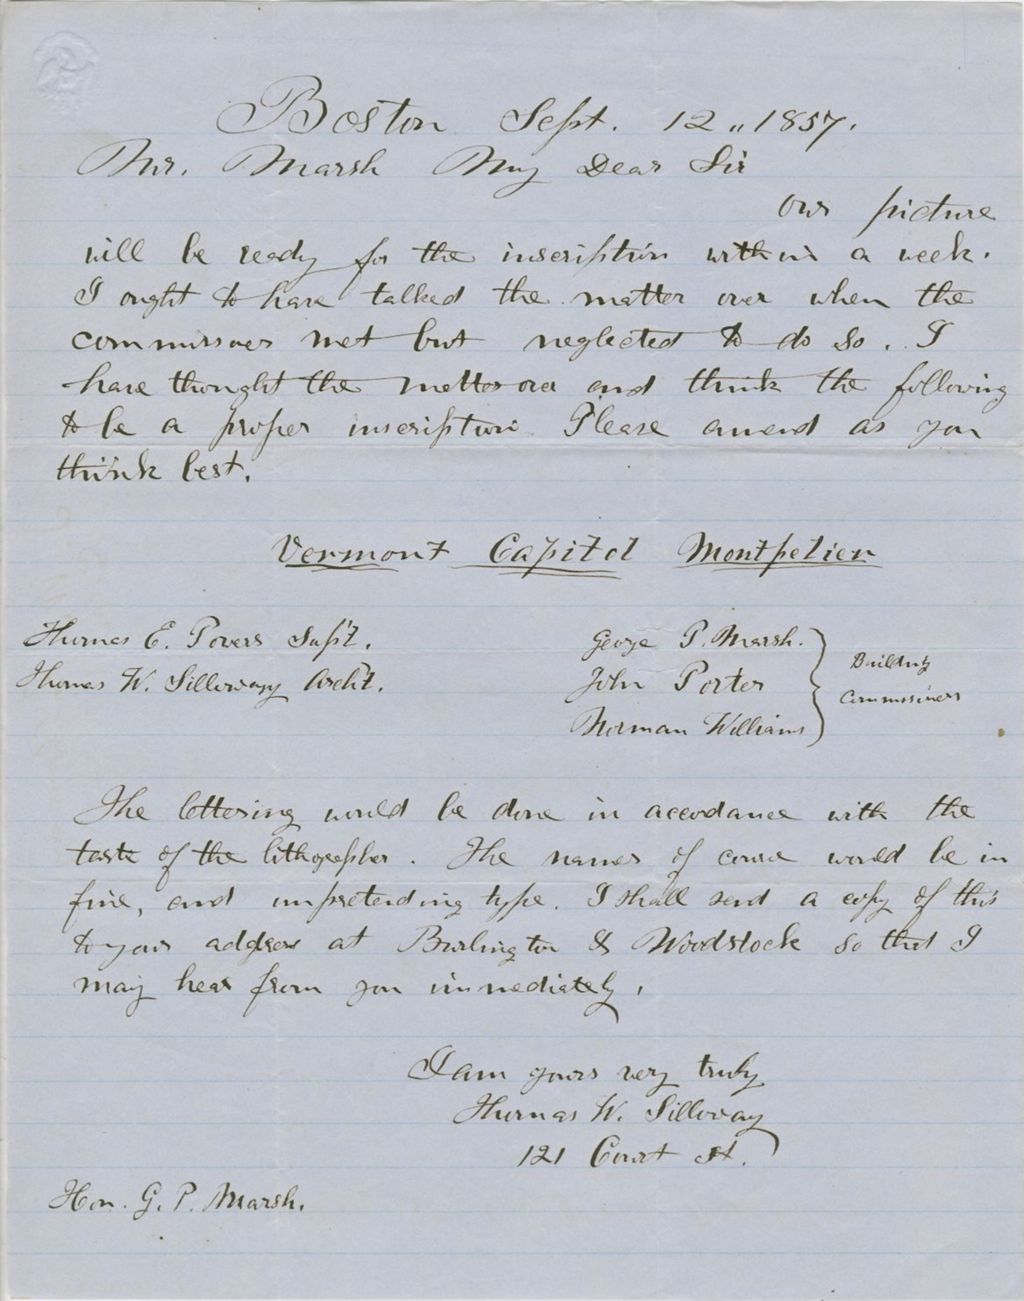 Boston Sept. 12,, 1857.
Mr. Marsh My Dear Sir
Our picture
will be ready for the inscription within a week.
I ought to have talked the matter over when the
commissioners met but neglected to do so. I
have thought the matter over and think the following
to be a proper inscription. Please amend as you
think best.
Vermont Capitol Montpelier
Thomas E. Powers Supt.
Thomas W. Silloway Archt.
George P. Marsh.
John Porter
Norman Williams
Building
Commissioners
The lettering would be done in accordance with the
taste of the lithographer. The names of course would be in
fine, and unpretending type. I shall send a copy of this
to your address at Burlington & Woodstock so that I
may hear from you immediately.
I am yours very truly
Thomas W. Silloway
121 Court St.
Hon. G. P. Marsh.